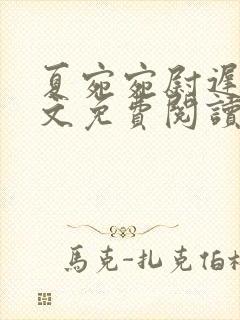 夏宛宛尉遲
文免費閱讀
馬克-扎克伯格